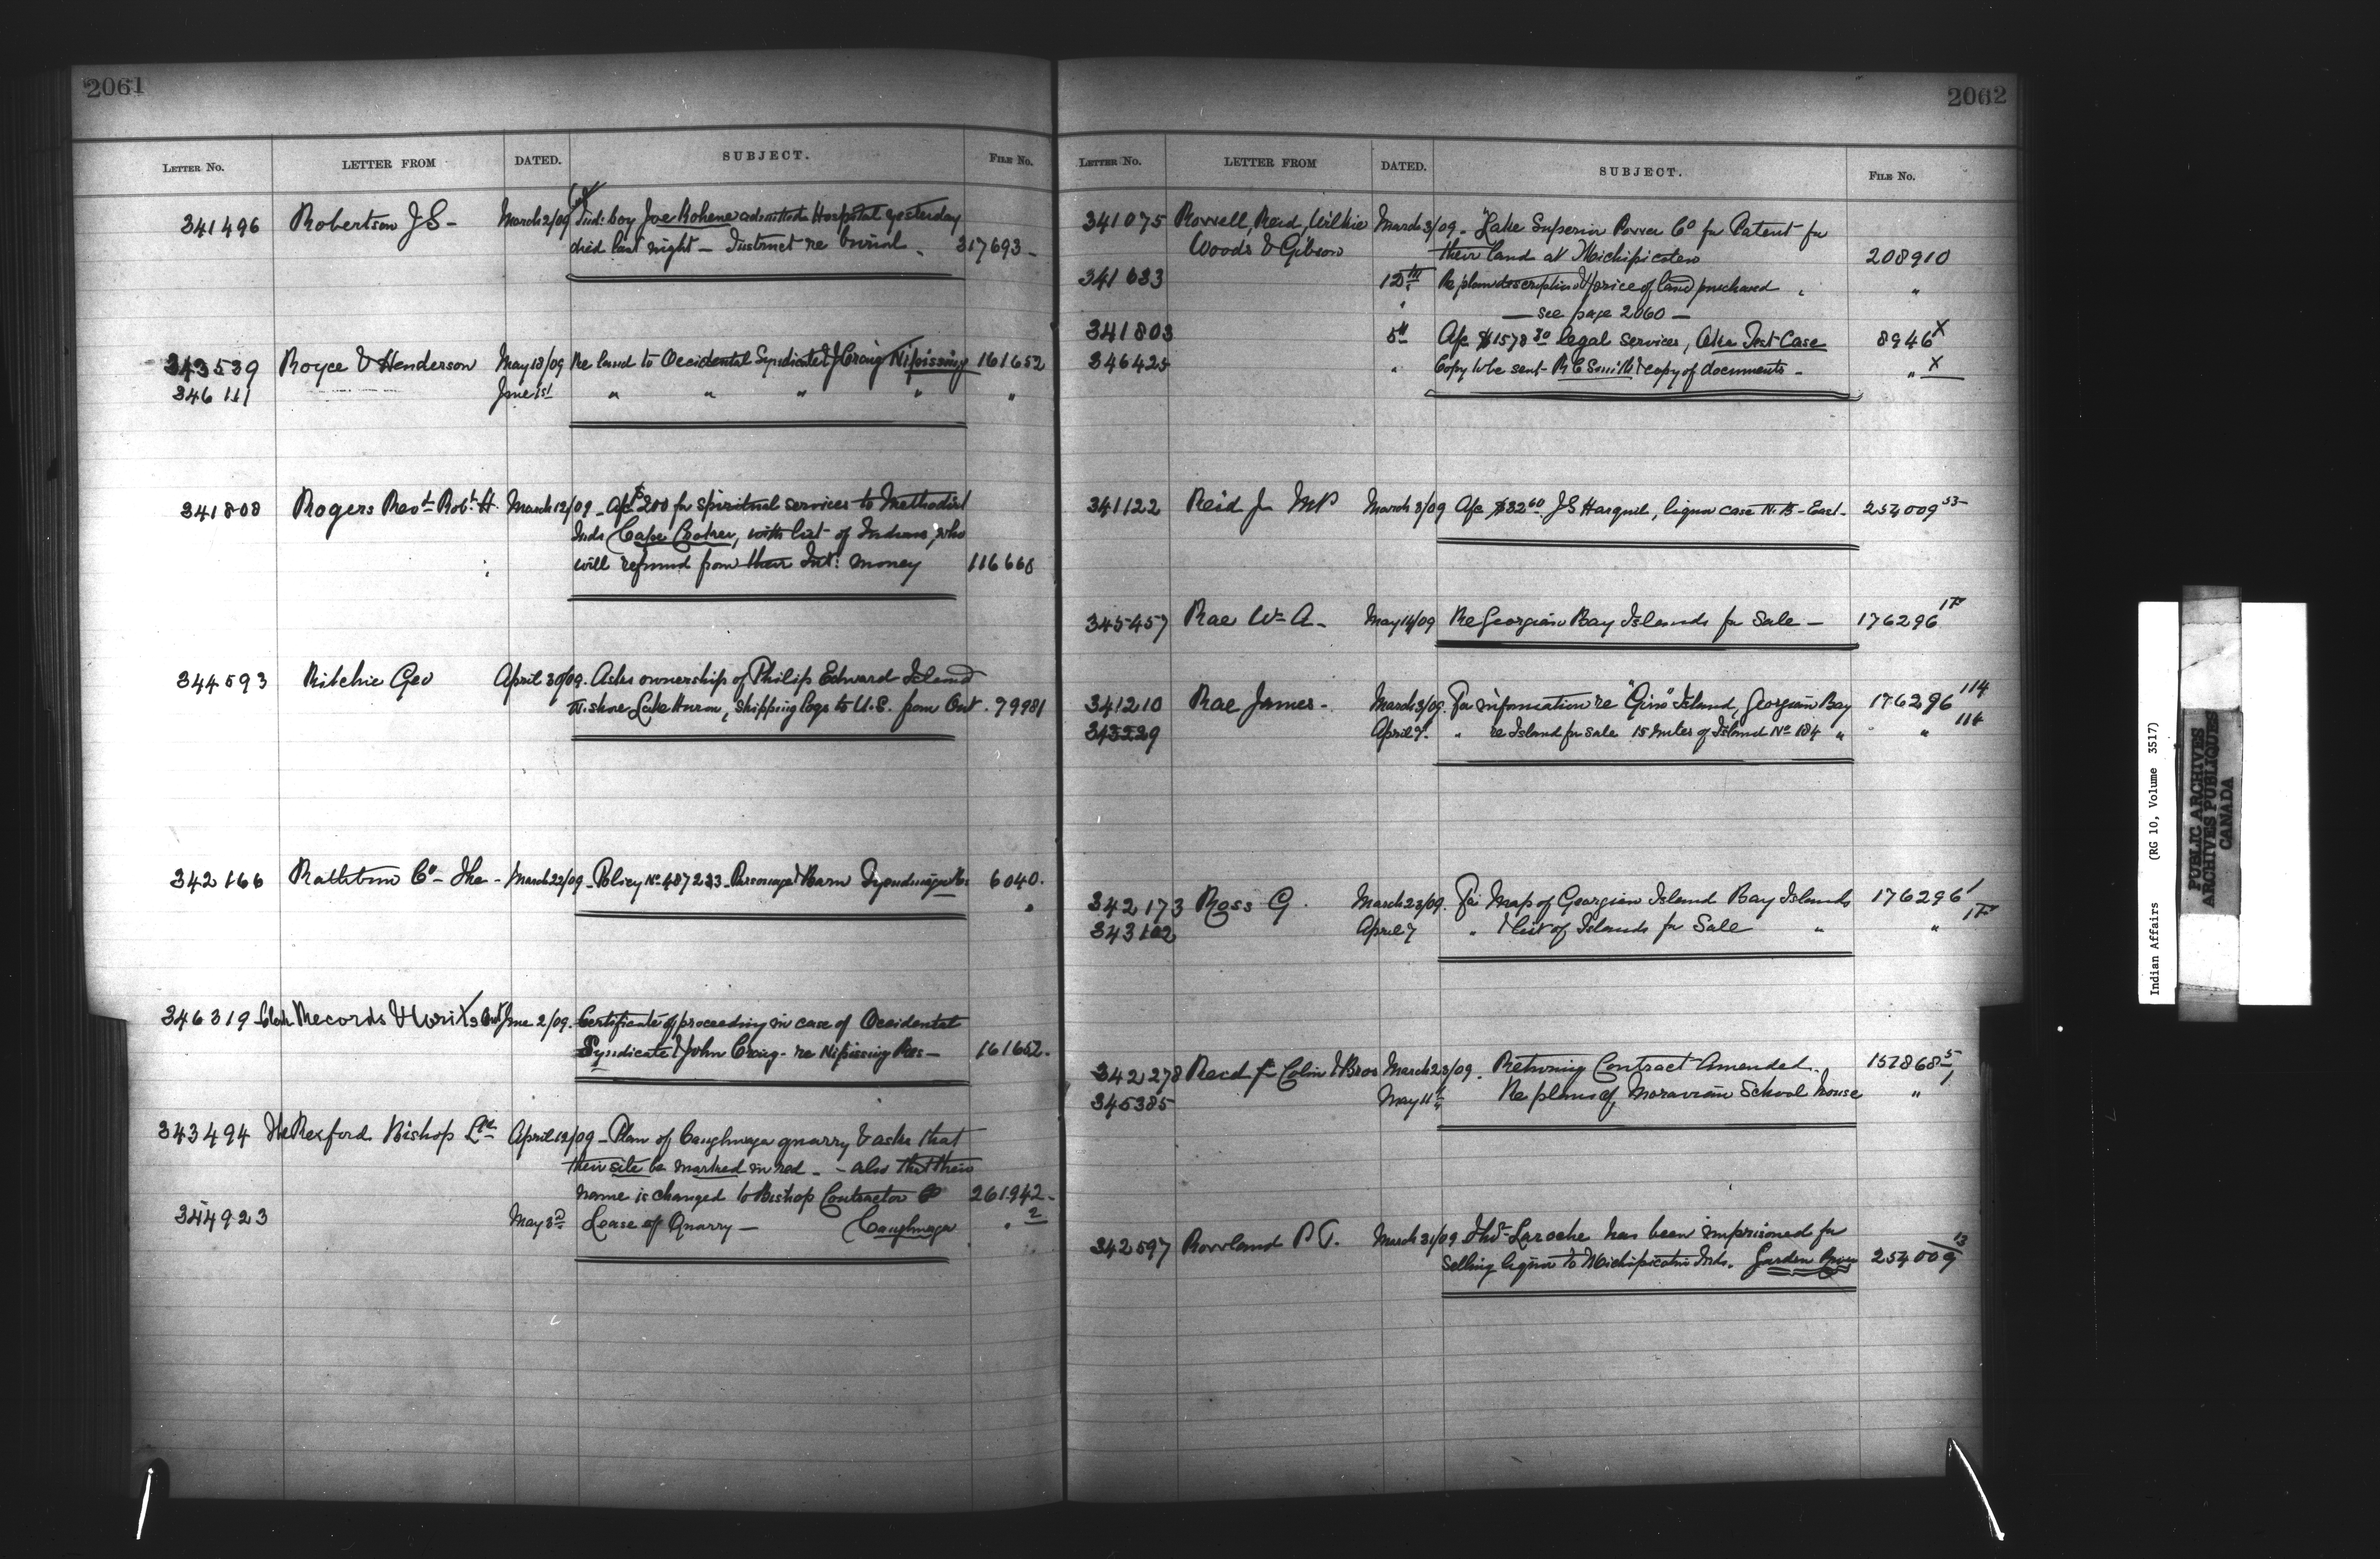 2061
LETTER NO. LETTER FROM DATED. SUBJECT. FILE NO.
341496 Robertson J S - March 2/09 Ind: boy Joe Kohene admitted Hospital yesterday
died last night - Instruct re burial. 317693 -
343539 Royce & Henderson May 18/09 Re land to Occidental Syndicate & J Craig Nipissing 161652
346111 June 1st " " " " "
341808 Rogers Revd Robt H. March 12/09 - a/c $200 for spiritual services to Methodist
Inds Cape Croker, with list of Indians, who
will refund from their Int: money 116668
344593 Ritchie Geo April 30/09. Asks ownership of Philip Edward Island
N. shore Lake Huron, shipping logs to U.S. from Ont. 79981
342166 Rathbun Co - The - March 22/09 - Policy No 487233 - Parsonage & Barn Tyendinaga Res 6040.
346319 Clerk Records & Writs Ont June 2/09. Certificate of proceeding in case of Occidental
Syndicate & John Craig - re Nipissing Res - 161652.
343494 The Rexford Bishop Ltd April 12/09 - Plan of Caughnaga quarry & asks that
their site be marked in red - - also that their
name is changed to Bishop Contractor Co 261942 -
344923 May 3d Lease of Quarry - Caughnaga " 2
2062
LETTER NO. LETTER FROM DATED. SUBJECT. FILE NO.
341075 Rowell, Reid, Wilkie March 3/09 - Lake Superior Power Co for Patent for
Woods & Gibson their land at Michipicoten 208910
341633 12th Re plan description & price of land purchased "
- see page 2060 -
341803 " 5th A/c $1578 30 legal services, Oka Test Case 8946 X
346425 " Copy to be sent - R C Smith & copy of documents - " X
341122 Reid J. MP March 3/09 A/c $32 60 J S Harquil, liquor case N.B - East. 254009 53
345457 Rae Wm A - May 14/09 Re Georgian Bay Islands for Sale - 176296 1F
341210 Rae James - March 3/09. For information re "Gin" Island, Georgian Bay 176296 114
343229 April 7. " re Island for sale 15 miles of Island No 184 " " 114
342173 Ross G. March 23/09. For Map of Georgian Island Bay Islands 176296 1
343102 April 7 " & list of Islands for Sale " " 1F
342278 Reid Colin & Bros March 23/09. Returning Contract Amended. 157868 5
345385 May 11th Re plans of Moravian School house " 1
342597 Rowland P T. March 31/09. Thos Laroche has been imprisoned for
selling liquor to Michipicoten Inds. Garden River 254009 13
Indian Affairs (RG 10, Volume 3517)
PUBLIC ARCHIVES
ARCHIVES PUBLIQUES
CANADA